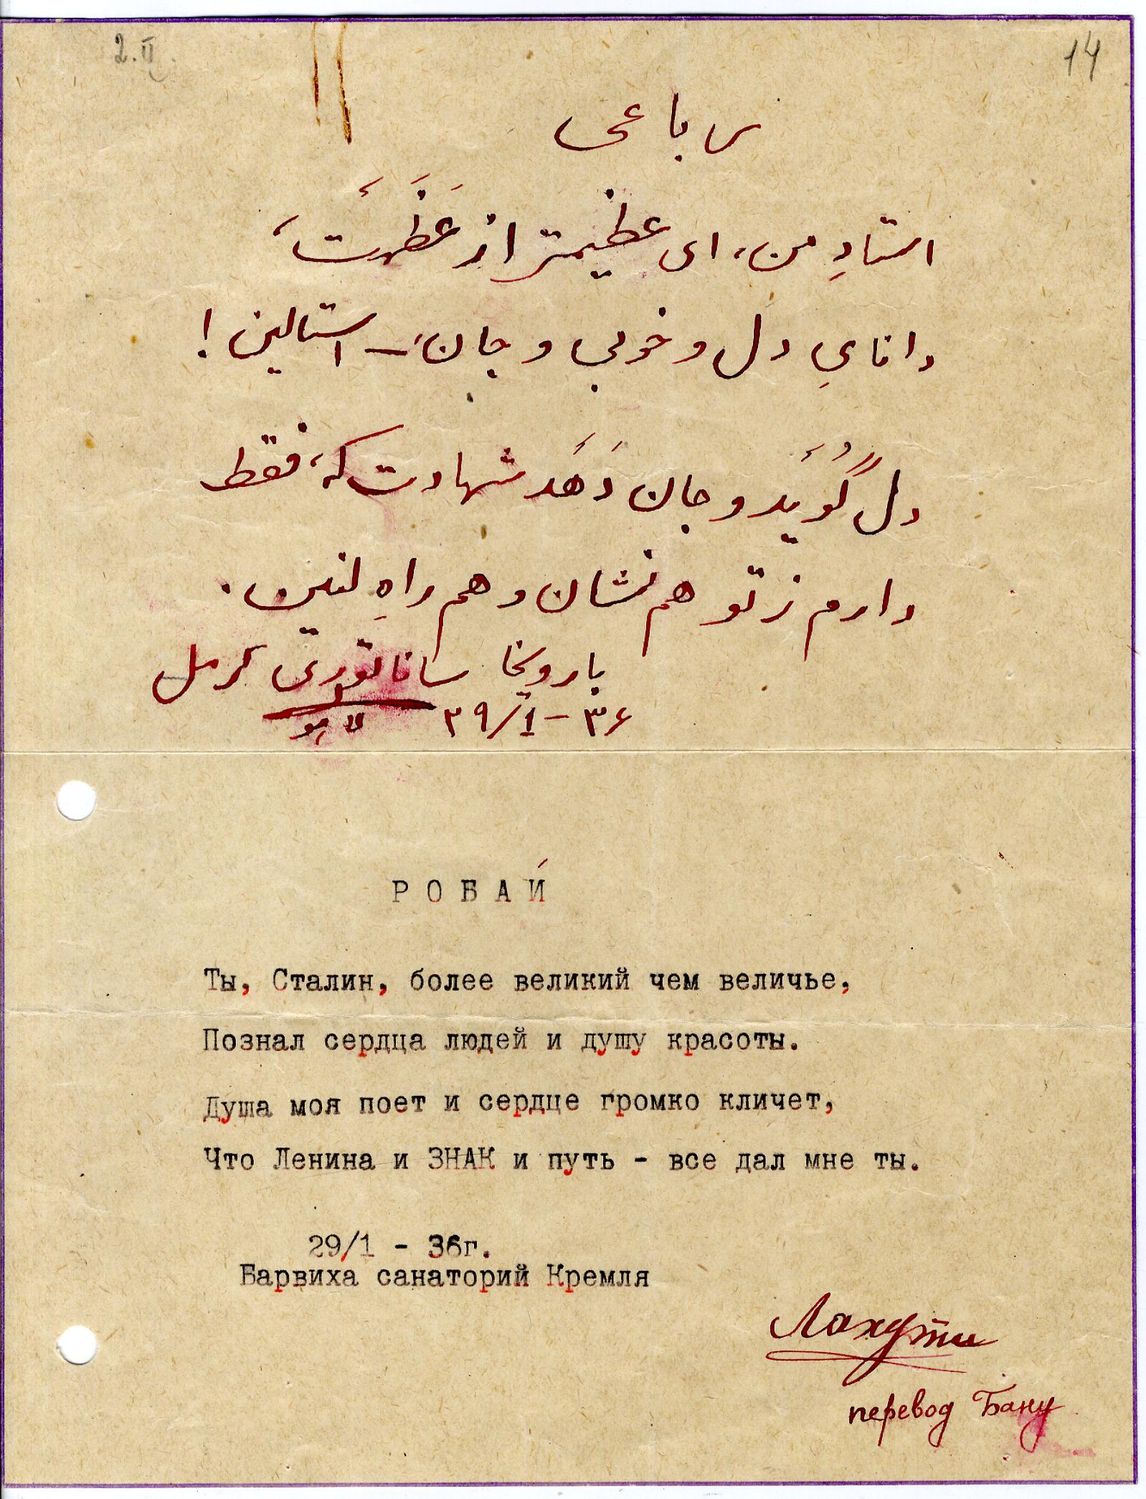 2.II.
14
رباعی
استادِ من، ای عظیمتر از عَظَمَت،
دانایِ دل و خوبی و جان، — استالین!
دل گُویَد و جان دَهَد شهادت که، فقط
دارم ز تو هم نشان و هم راهِ لنین.
بارویخا ساناتوری کرمل
۲۹/1 – ۳۶
РОБАИ́
Ты, Сталин, более великий чем величье,
Познал сердца людей и душу красоты.
Душа моя поет и сердце громко кличет,
Что Ленина и ЗНАК и путь - все дал мне ты.
29/1 - 36г.
Барвиха санаторий Кремля
Лахути
перевод Бану